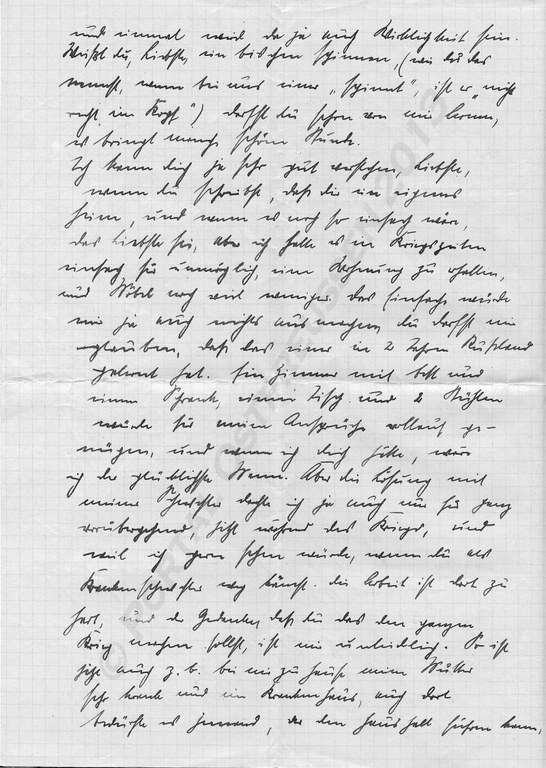 und einmal wird da ja auch Wirklichkeit sein.
Weißt du, Liebste, ein bischen spinnen, (wie du das
nennst, wenn bei uns einer „spinnt", ist er „nicht
recht im Kopf") darfst du schon von mir lernen,
es bringt manch schöne Stunde.
Ich kann dich ja sehr gut verstehen, Liebste,
wenn du schreibst, daß dir ein eigenes
Heim, und wenn es noch so einfach wäre,
das Liebste sei, aber ich halte es in Kriegszeiten
einfach für unmöglich, eine Wohnung zu erhalten,
und Möbel noch viel weniger. Das Einfache würde
mir ja auch nichts ausmachen, du darfst mir
glauben, daß das einer in 2 Jahren Rußland
gelernt hat. Ein Zimmer mit Bett und
einem Schrank, einem Tisch und 2 Stühlen
würde für meine Ansprüche vollauf ge-
nügen, und wenn ich dich hätte, wär
ich der glücklichste Mann. Aber die Lösung mit
meiner Schwester dachte ich ja auch nur für ganz
vorübergehend, jetzt während des Kriegs, und
weil ich gern sehen würde, wenn du als
Krankenschwester weg kämst. Die Arbeit ist dort zu
hart, und der Gedanke, daß du das den ganzen
Krieg machen sollst, ist mir unleidlich. So ist
jetzt auch z. b. bei mir zu Hause meine Mutter
sehr krank und im Krankenhaus, auch dort
bedürfte es jemand, der den Haushalt führen kann,